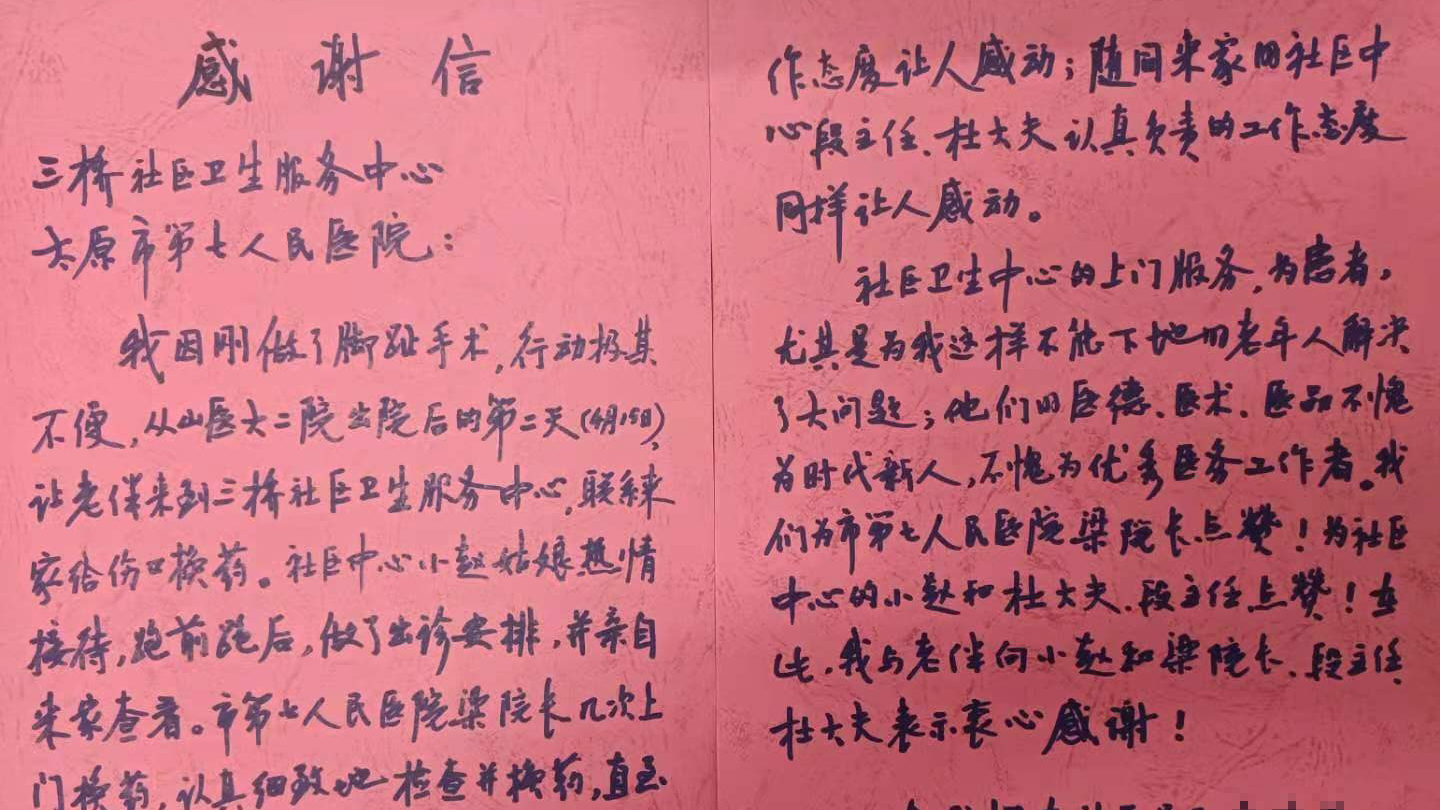 感谢信
三桥社区卫生服务中心
太原市第七人民医院：
我因刚做了脚趾手术，行动极其
不便，从山医大二院出院后的第二天（6月15日），
让老伴来到三桥社区卫生服务中心，联系来
家给伤口换药。社区中心小赵姑娘热情
接待，跑前跑后，做了出诊安排，并亲自
来家查看。市第七人民医院梁院长几次上
门换药，认真细致地检查并换药，直至
作态度让人感动；随同来家的社区中
心段主任、杜大夫认真负责的工作态度
同样让人感动。
社区卫生中心的上门服务，为患者，
尤其是为我这样不能下地的老年人解决
了大问题；他们的医德、医术、医品不愧
为时代新人，不愧为优秀医务工作者。我
们为市第七人民医院梁院长点赞！为社区
中心的小赵和杜大夫、段主任点赞！在
此，我与老伴向小赵和梁院长、段主任
杜大夫表示衷心感谢！